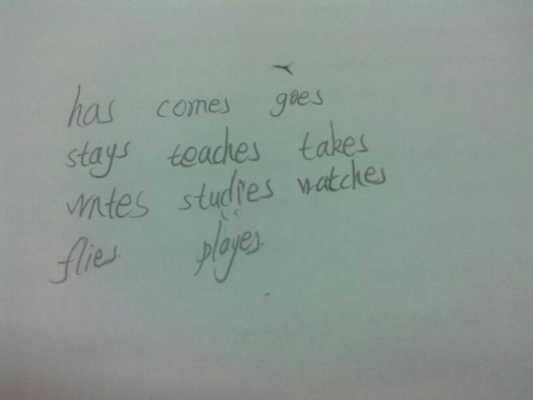 has comes goes
stays teaches takes
writes studies watches
flies playes